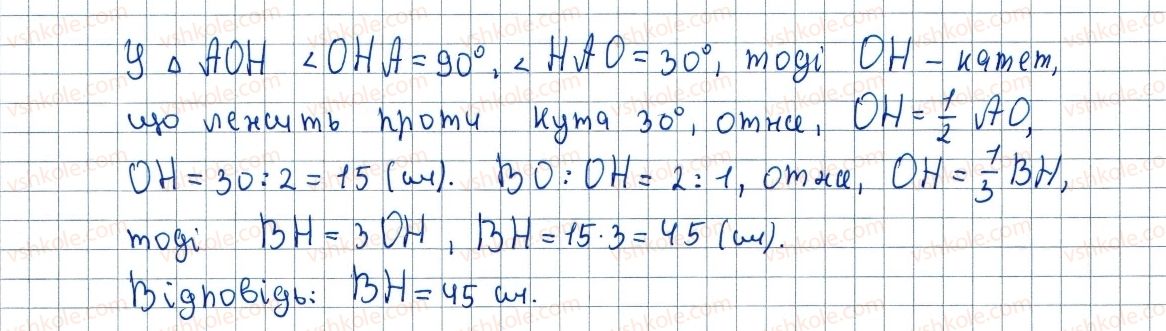 У △ AOH <OHA=90°, <HAO=30°, тоді OH – катет,
що лежить проти кута 30°, отже, OH = 1/2 AO,
OH = 30:2 = 15 (см). BO:OH = 2:1, отже, OH = 1/3 BH,
тоді BH = 3OH, BH = 15·3 = 45 (см).
Відповідь: BH = 45 см.